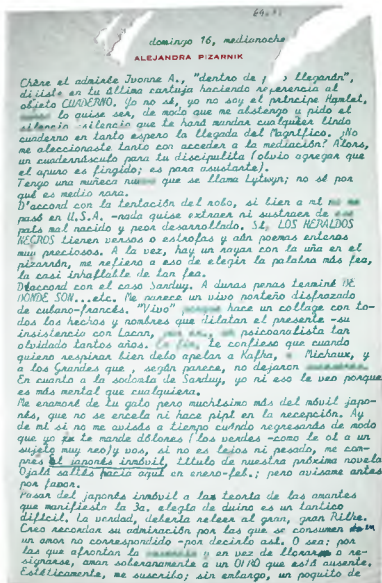 domingo 16, medianoche
ALEJANDRA PIZARNIK
Chère et admirée Ivonne A., "dentro de llegarán",
dijiste en tu última cartuja haciendo referencia al
objeto CUADERNO. Yo no sé, yo no soy el príncipe Hamlet,
lo quise ser, de modo que me abstengo y pido el
silencio te hará mandar cualquier lindo
cuaderno en tanto espero la llegada del Magnífico. ¿No
me aleccionaste tanto con acceder a la mediación? Alors,
un cuadernúsculo para tu discipulita (obvio agregar que
el apuro es fingido; es para asustarte).
Tengo una muñeca que se llama Lytwyn; no sé por
qué es medio rara.
D'accord con la tentación del robo, si bien a mí
pasó en U.S.A. -nada quise extraer ni sustraer de
país mal nacido y peor desarrollado. Sí, LOS HERALDOS
NEGROS tienen versos o estrofas y aún poemas enteros
muy preciosos. A la vez, hay un rayar con la uña en el
pizarrón, me refiero a eso de elegir la palabra más fea,
la casi inhablable de tan fea.
D'accord con el caso Sarduy. A duras penas terminé DE
DONDE SON...etc. Me parece un vivo porteño disfrazado
de cubano-francés. "Vivo" hace un collage con to-
dos los hechos y nombres que dilatan el presente -su
insistencia con Lacan, psicoanalista tan
olvidado tantos años. te confieso que cuando
quiero respirar bien debo apelar a Kafka, a Michaux, y
a los Grandes que, según parece, no dejaron
En cuanto a la sodoata de Sarduy, yo ni eso le veo porque
es más mental que cualquiera.
Me enamoré de tu gato pero muchísimo más del móvil japo-
nés, que no se encela ni hace pipí en la recepción. Ay
de mí si no me avisás a tiempo cuándo regresarás de modo
que yo te mande dólares (los verdes -como le oí a un
sujeto muy reo)y vos, si no es lejos ni pesado, me com-
prés el japonés inmóvil, título de nuestra próxima novela
Ojalá saltés hacia aquí en enero-feb.; pero avisame antes
por favor.
Pasar del japonés inmóvil a la teoría de las amantes
que manifiesta la 3a. elegía de duino es un tantico
difícil, la verdad, debería releer al gran, gran Rilke.
Creo recordar su admiración por las que se consumen en
un amor no correspondido -por decirlo así. O sea: por
las que afrontan la y en vez de llorar o re-
signarse, aman soberanamente a un OTRO que está ausente.
Estéticamente, me suscribo; sin embargo, un poquito de